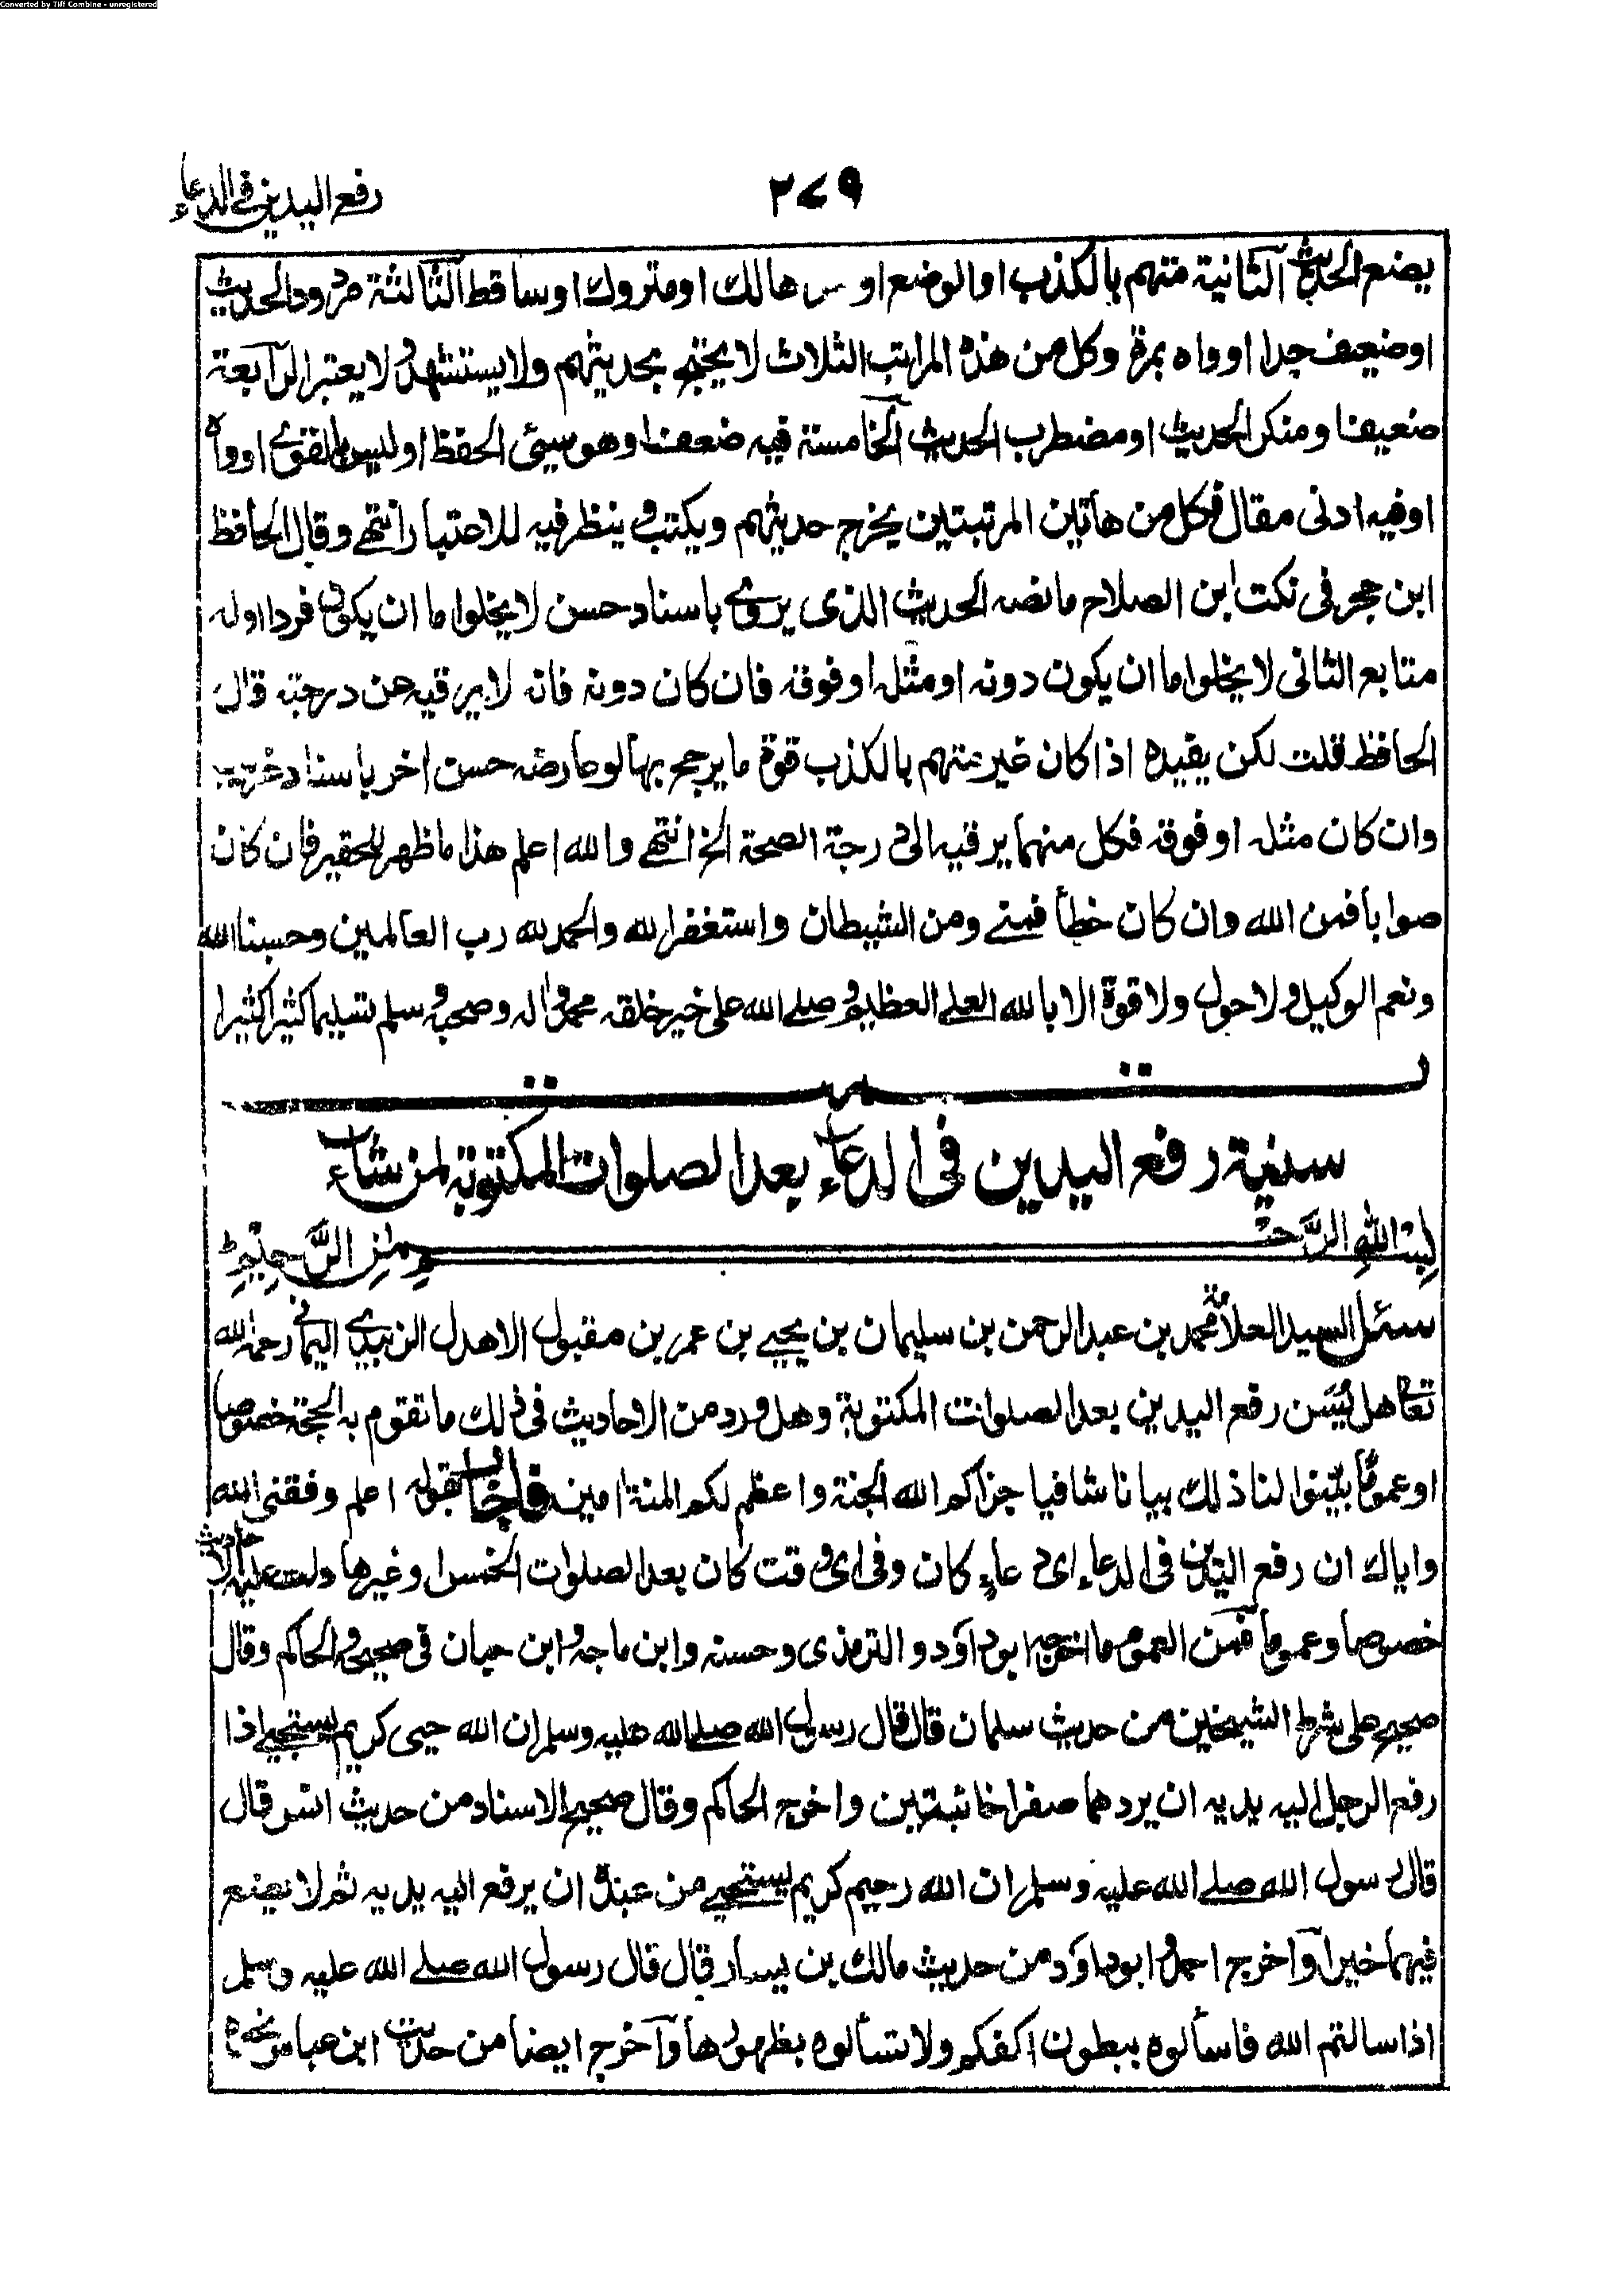 Converted by Tiff Combine - unregistered
رفع اليدين فى الدعاء
٢٧٩
يضع الحديث الثانية متهم بالكذب او الوضع او هالك او متروك او ساقط الثالثة مردود الحديث
او ضعيف جدا او واه بمرة وكل من هذه المراتب الثلاث لا يحتج بحديثهم ولا يستشهد ولا يعتبر الرابعة
ضعيفا ومنكر الحديث او مضطرب الحديث الخامسة فيه ضعفا وهو سيئى الحفظ او ليس بالقوے او واه
او فيه ادنى مقال فكل من هاتين المرتبتين يخرج حديثهم ويكتب و ينظر فيه للاعتبار انتهے وقال الحافظ
ابن حجر فى نكت ابن الصلاح ما نصه الحديث الذى يروے باسناد حسن لا يخلوا ما ان يكون فردا اوله
متابع الثانى لا يخلوا ما ان يكون دونه او مثله او فوقه فان كان دونه فانه لا يرقيه عن درجته قال
الحافظ قلت لكن يقيده اذا كان غير متهم بالكذب قوة ما يرجح بها لو عارضه حسن اخر باسناد غريب
وان كان مثله او فوقه فكل منهما يرقيه الى درجة الصحة الخ انتهے والله اعلم هذا ما ظهر للحقير فان كان
صوابا فمن الله وان كان خطأ فمنے ومن الشيطان واستغفر الله والحمد لله رب العالمين وحسبنا الله
ونعم الوكيل ولا حول ولا قوة الا بالله العلے العظيم و صلے الله على خير خلقه محمد واله وصحبه وسلم تسليما كثيرا كثيرا
تمت
سنية رفع اليدين فى الدعاء بعد الصلوات المكتوبة لمن شاء
بسم الله الرَّحمٰنِ الرَّحِيْمِ
سئل السيد العلامة محمد بن عبد الرحمن بن سليمان بن يحيے بن عمر بن مقبول الاهدل الزبيدے اليمانى رحمه الله
تعالى هل يُسَن رفع اليدين بعد الصلوات المكتوبة وهل ورد من الاحاديث فى ذلك ما تقوم به الحجة خصوصا
او عموما بيّنوا لنا ذلك بيانا شافيا جزاكم الله الجنة واعظم لكم المنة امين فاجاب بقوله اعلم وفقنى الله
واياك ان رفع اليدين فى الدعاء اى دعاءٍ كان وفى اى وقت كان بعد الصلوات الخمس او غيرها دلت عليه الاحاديث
خصوصا وعموما فمن العموم ما اخرجه ابو داود والترمذى وحسنه وابن ماجه وابن حبان فى صحيحه والحاكم وقال
صحيح على شرط الشيخين من حديث سلمان قال قال رسول الله صلے الله عليه وسلم ان الله حيى كريم يستحيے اذا
رفع الرجل اليه يديه ان يردهما صفرا خائبتين واخرج الحاكم وقال صحيح الاسناد من حديث انس قال
قال رسول الله صلے الله عليه وسلم ان الله رحيم كريم يستحيے من عبده ان يرفع اليه يديه ثم لا يضع
فيهما خيرا وآخرج احمد و ابوداود من حديث مالك بن يسار قال قال رسول الله صلے الله عليه وسلم
اذا سالتم الله فاسألوه ببطون اكفكم ولا تسألوه بظهورها وآخرج ايضا من حديث ابن عباس نحوه